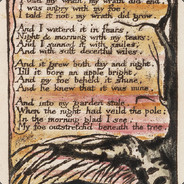 told my wrath, my wrath did end.
was angry with my foe:
told it not, my wrath did grow.
And I waterd it in fears,
Night & morning with my tears:
And I sunned it with smiles,
And with soft deceitful wiles.
And it grew both day and night,
Till it bore an apple bright.
And my foe beheld it shine,
And he knew that it was mine.
And into my garden stole.
When the night had veild the pole;
In the morning glad I see,
My foe outstretchd beneath the tree.